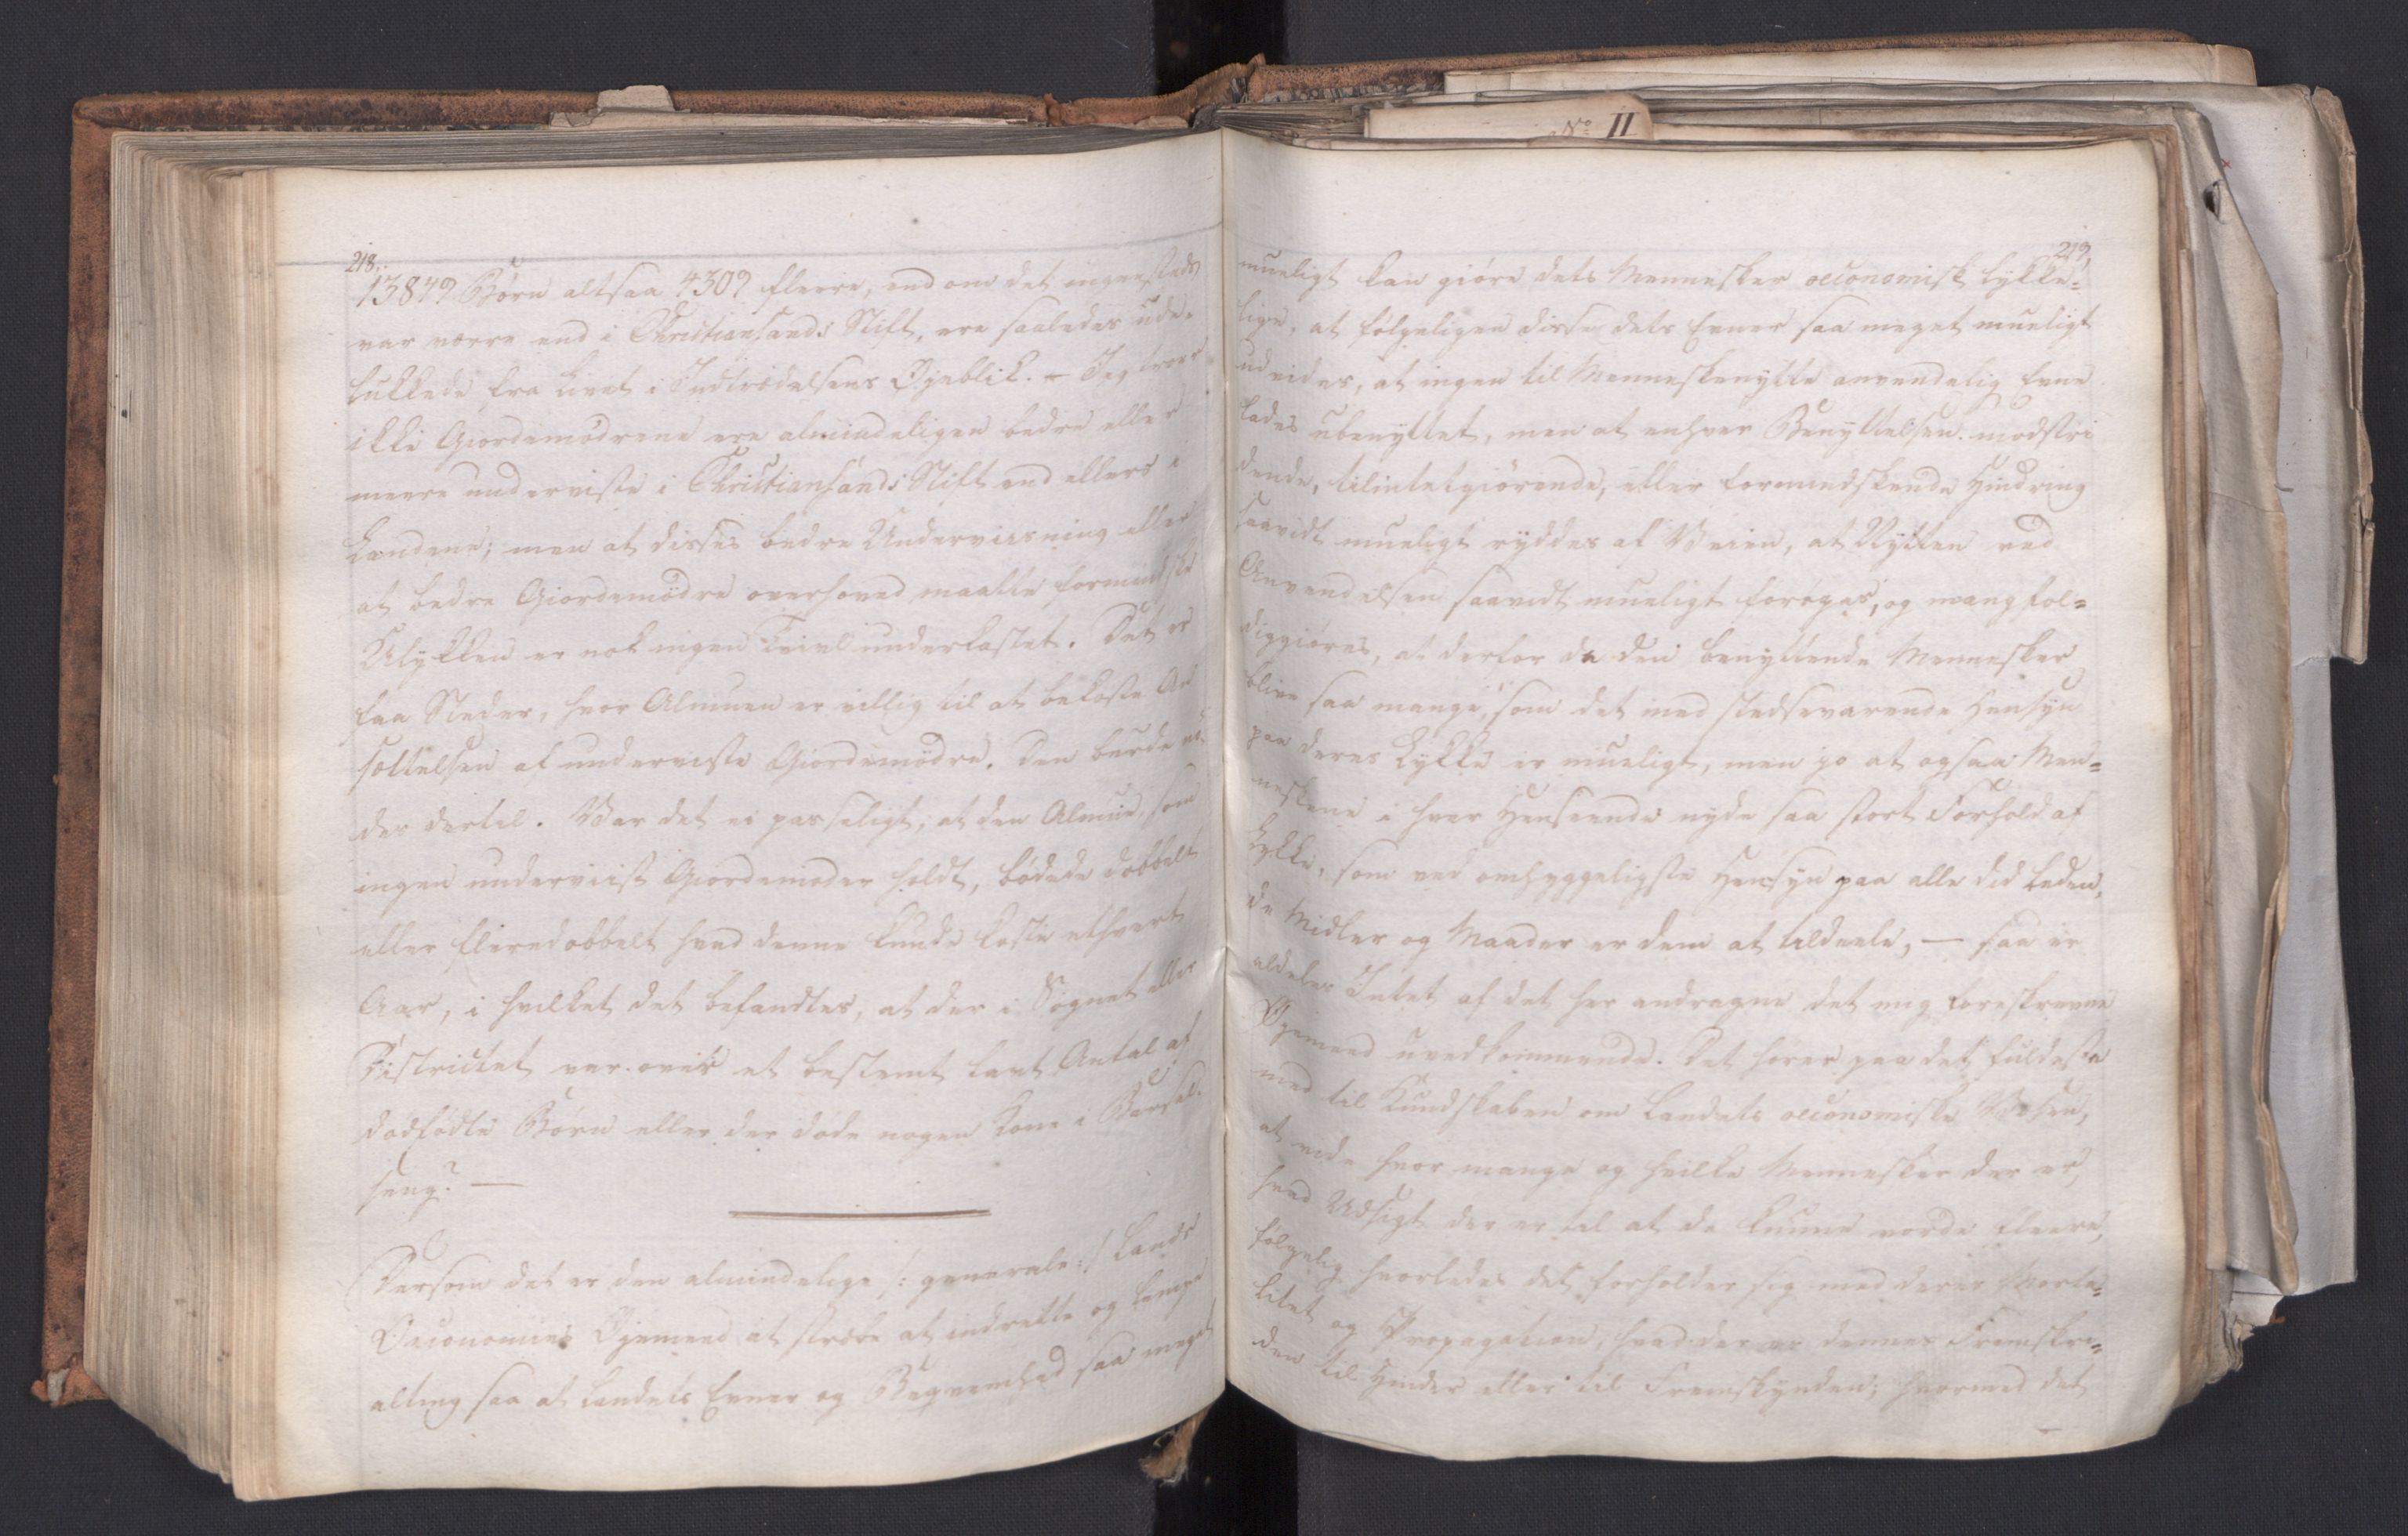 No II
218.
13849 Börn altsaa 4309 fleere, end om det ingensteds
var værre end i Christiansands Stift, ere saaledes ude-
lukkede fra Livet i Indtrædelsens Øjeblik. – Jeg troer
ikke Giordemödrene ere almindeligen bedre eller
meere underviste i Christiansands Stift end ellers i
Landene; men at disses bedre Underviisning eller
at bedre Giordemödre overhoved maatte formindske
Ulykken er nok ingen Tvivl underkastet. Det er
faa Steder, hvor Almuen er villig til at bekoste An-
sættelsen af underviste Giordemödre. Den burde nö-
des dertil. Var det ei passeligt; at den Almue, som
ingen underviist Giordemoder holdt, bödede dobbelt
eller fleredobbelt hvad denne kunde koste ethvert
Aar, i hvilket det befandtes, at der i Sognet eller
Districtet var over et bestemt lavt Antal af
dödfödte Börn eller der döde nogen Kone i Barsel-
seng? –
Dersom det er den almindelige /: generale :/ Lands
Oeconomies Øjemeed at stræbe at indrette og lempe
alting saa at Landets Evner og Beqvemhed saa meget
219.
mueligt kan giöre dets Mennesker oeconomisk lykke-
lige, at fölgeligen disse dets Evner saa meget mueligt
udvides, at ingen til Menneskenytte anvendelig Evne
lades ubenyttet, men at enhver Benyttelsen modstri
dende, tilintetgiörende, eller formindskende Hindring
saavidt mueligt ryddes af Veien, at Nytten ved
Anvendelsen saavidt mueligt foröges, og mangfol-
diggiöres, at derfor de den benyttende Mennesker
blive saa mange, som det med stedsevarende Hensyn
paa deres Lykke er mueligt, men jo at ogsaa Men-
neskene i hver Henseende nyde saa stort Forhold af
Lykke, som ved omhyggeligste Hensyn paa alle did leden-
de Midler og Maader er dem at tildeele, – saa er
aldeles Intet af det her andragne det mig foreskrevne
Øjemeed uvedkommende. Det hörer paa det fuldeste
med til Kundskaben om Landets oeconomiske Væsen,
at vide hvor mange og hvilke Mennesker der er,
hvad Udsigt der er til at de kunne vorde fleere,
fölgelig hvorledes det forholder sig med deres Morta-
litet og Propagation, hvad der er dennes Fremskri-
den til Hinder eller til Fremskynden; hvormed det